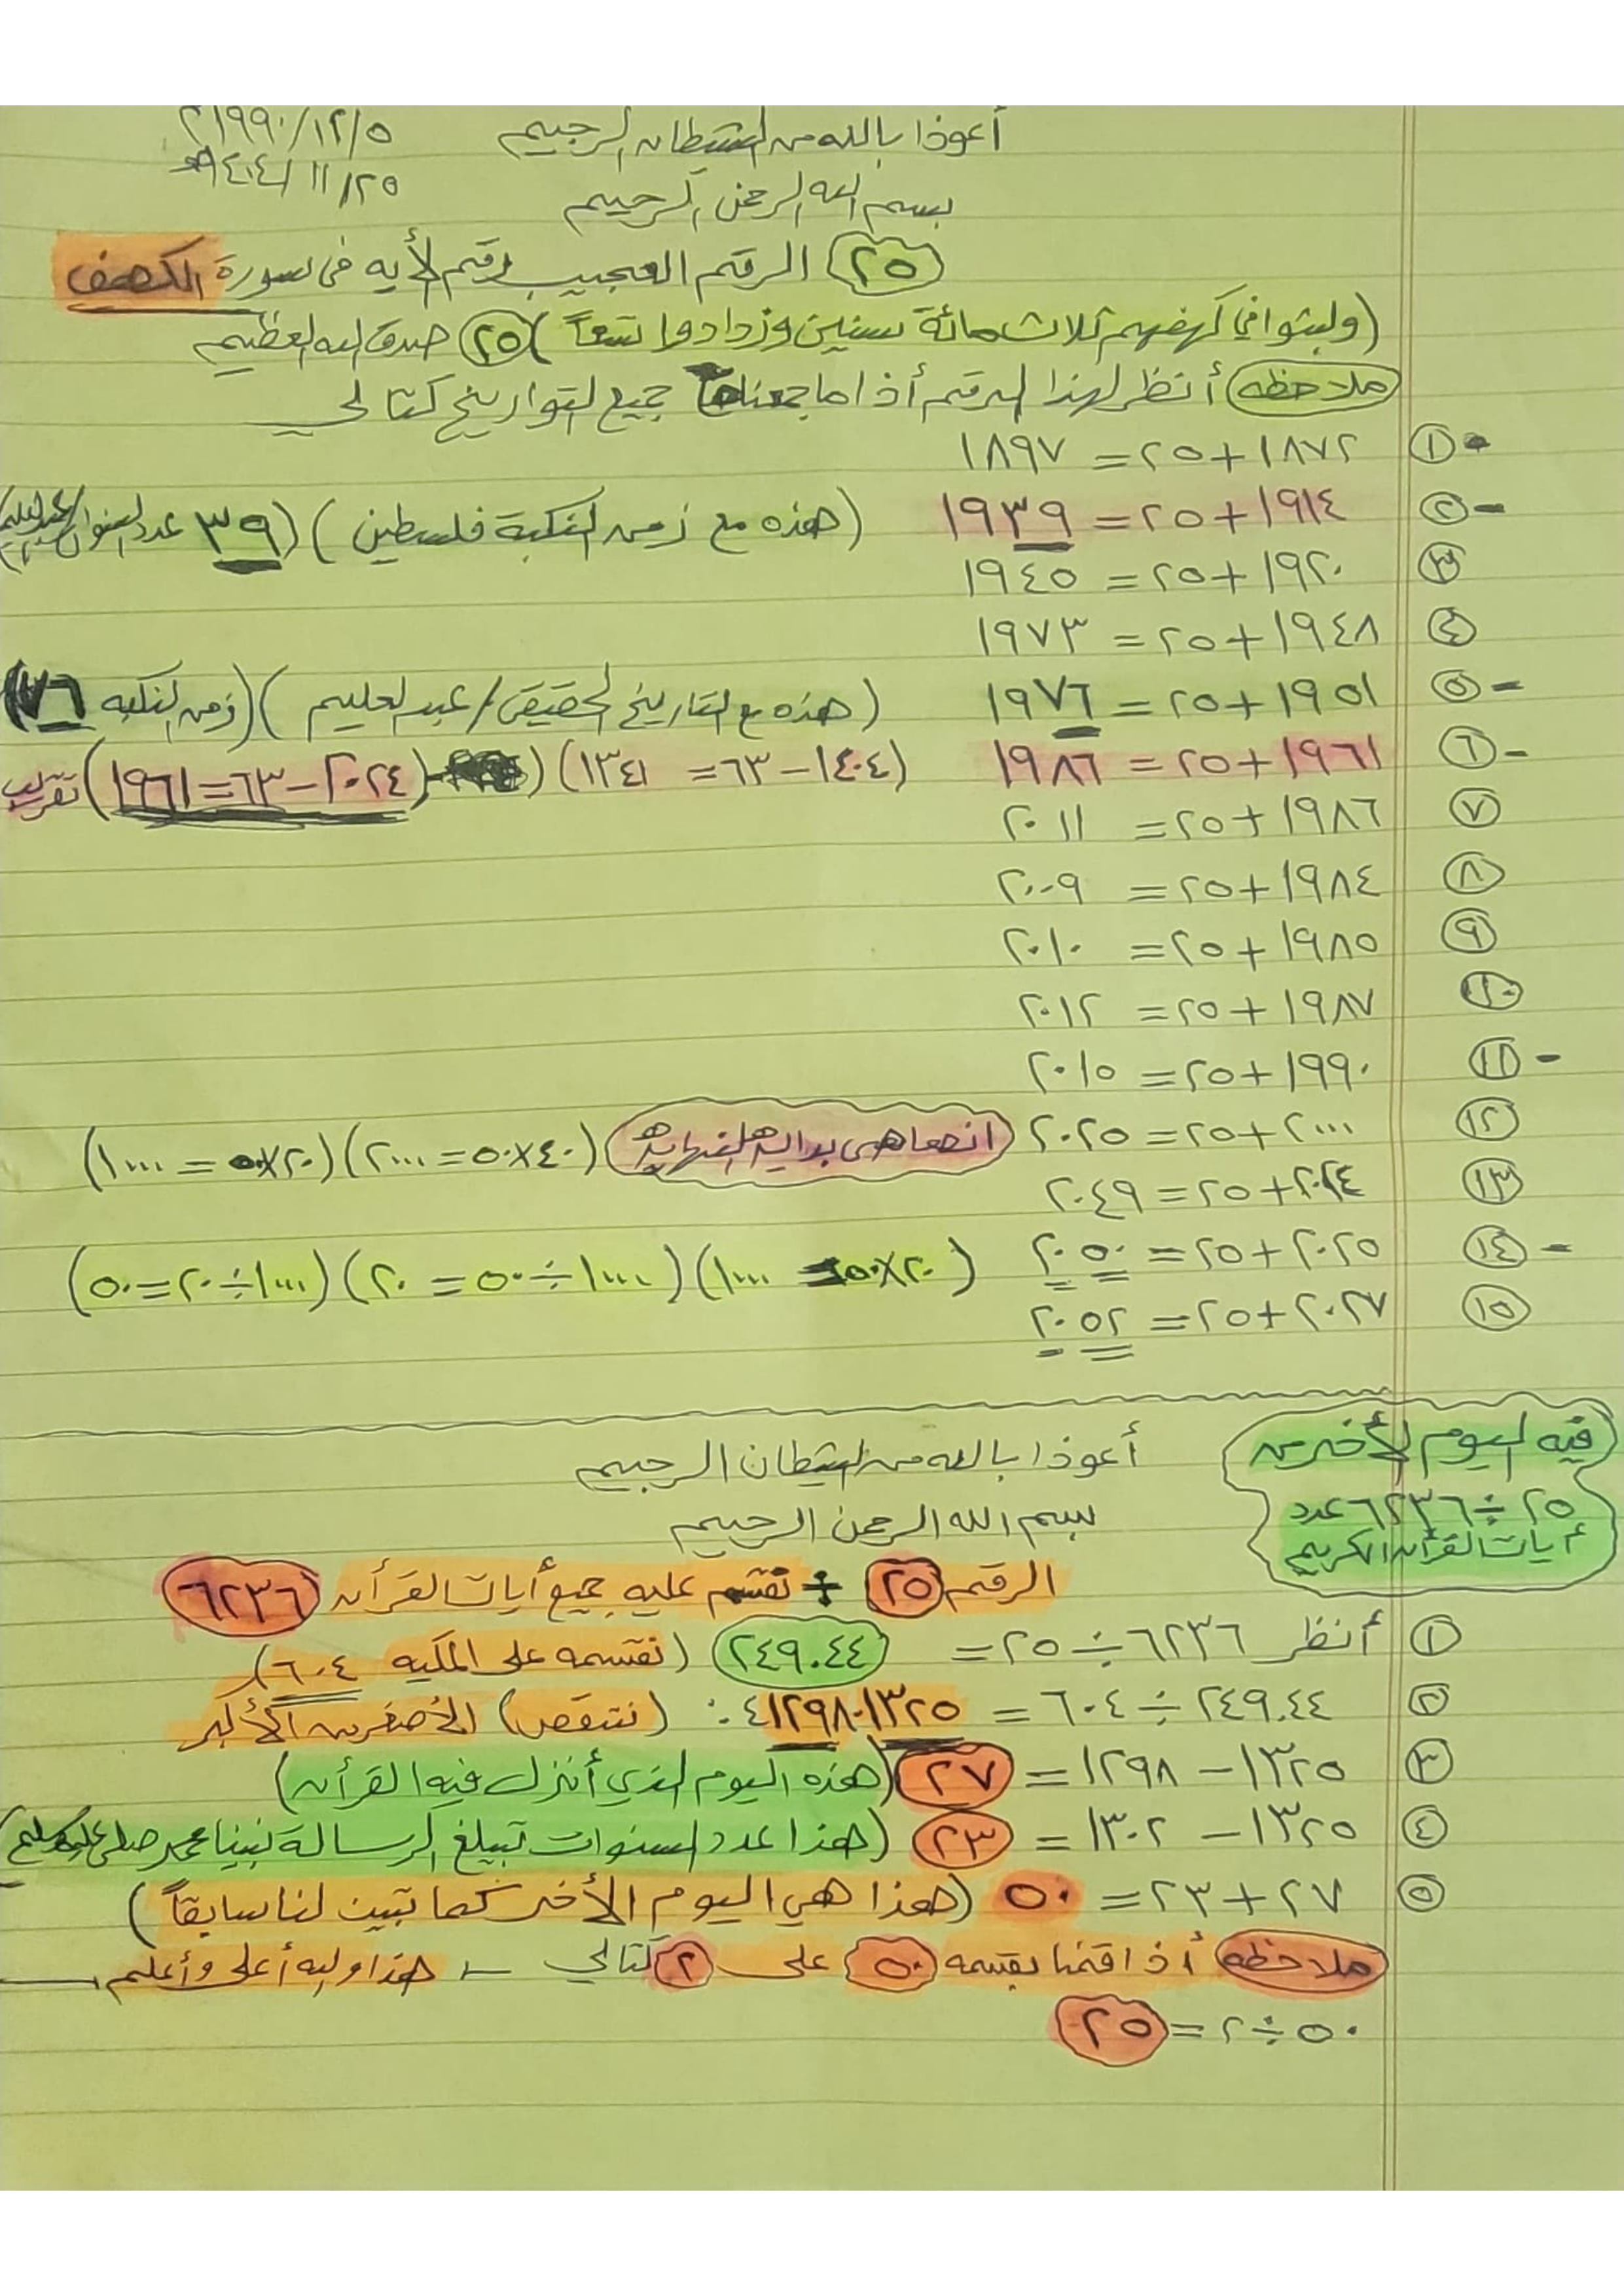 أعوذ بالله من الشيطان الرجيم ١٩٩٠/١٢/٥م
٢٥/ ١١/ ١٤٠٤هـ
بسم الله الرحمن الرحيم
٢٥ الرقم العجيب رقم الأيه في سورة الكهف
(ولبثوا في كهفهم ثلاث مائة سنين وزدادوا تسعاً) ٢٥ صدق الله العظيم
ملاحظه أنظر لهذا الرقم أذا ما جمعناها جميع التواريخ كتالي
١ - ١٨٧٢+٢٥= ١٨٩٧
٢ - ١٩١٤+٢٥= ١٩٣٩ (هذه مع زمن النكبة فلسطين) (٣٩ عدد السنوات
٣ ١٩٢٠+٢٥= ١٩٤٥
٤ ١٩٤٨+٢٥= ١٩٧٣
٥ - ١٩٥١+٢٥= ١٩٧٦ (هذه مع التاريخ الحقيقي/عبدالعليم) (زمن النكبه ٧٦)
٦ - ١٩٦١+٢٥= ١٩٨٦ (١٤٠٤-٦٣= ١٣٤١) (٢٠٢٤-٦٣=١٩٦١) تقريب
٧ ١٩٨٦+٢٥= ٢٠١١
٨ ١٩٨٤+٢٥= ٢٠٠٩
٩ ١٩٨٥+٢٥= ٢٠١٠
١٠ ١٩٨٧+٢٥= ٢٠١٢
١١ - ١٩٩٠+٢٥= ٢٠١٥
١٢ ٢٠٠٠+٢٥= ٢٠٢٥ (٤٠×٥٠=٢٠٠٠) (٢٠×٥٠=١٠٠٠)
١٣ ٢٠٢٤+٢٥= ٢٠٤٩
١٤ - ٢٠٢٥+٢٥= ٢٠٥٠ (٢٠×٥٠=١٠٠٠) (١٠٠٠÷٥٠=٢٠) (١٠٠٠÷٢٠=٥٠)
١٥ ٢٠٢٧+٢٥= ٢٠٥٢
فيه اليوم الأخر من
٢٥ ÷ ٦٢٣٦ عدد
أيات القرأن الكريم
أعوذ بالله من الشيطان الرجيم
بسم الله الرحمن الرحيم
الرقم ٢٥ ÷ نقسم عليه جميع أيات القرأن ٦٢٣٦
١ أنظر ٦٢٣٦÷٢٥= ٢٤٩.٤٤ (نقسمه على المكيه ٦٠٤)
٢ ٢٤٩.٤٤÷٦٠٤= ٤١٢٩٨٠١٣٢٥.: (نتقص) الأصغر من الأكبر
٣ ١٣٢٥-١٢٩٨= ٢٧ (هذه اليوم الذي أنزل فيه القرأن)
٤ ١٣٢٥-١٣٠٢= ٢٣ (هذا عدد السنوات تبيلغ الرسالة نبينا محمد صلى عليه وسلم)
٥ ٢٧+٢٣= ٥٠ (هذا هي اليوم الأخر كما تبين لنا سابقاً)
ملاحظه أذا قمنا بقسمه ٥٠ على ٢ كتالي - هذا والله أعلى وأعلم
٥٠÷٢= ٢٥